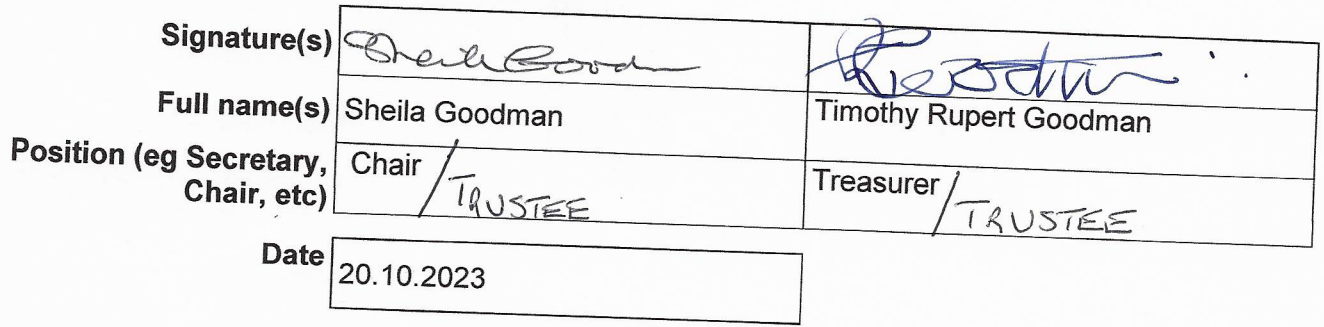 Signature(s) Sheila Goodman
Full name(s) Sheila Goodman Timothy Rupert Goodman
Position (eg Secretary, Chair, etc) Chair / TRUSTEE Treasurer / TRUSTEE
Date 20.10.2023